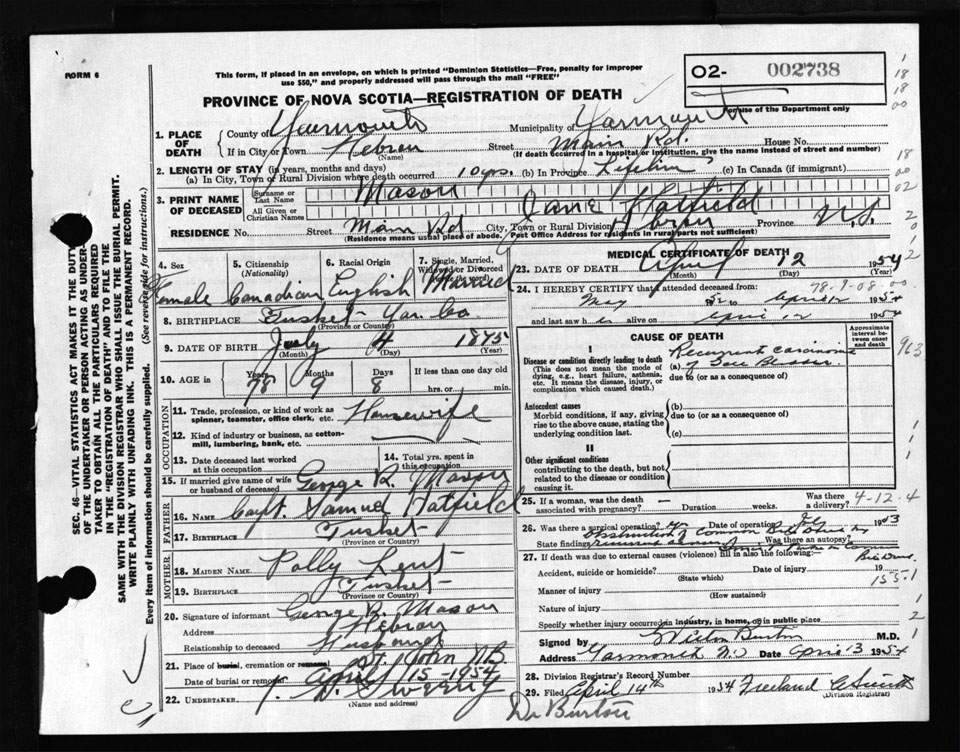 FORM 6
This form, if placed in an envelope, on which is printed "Dominion Statistics—Free, penalty for improper
use $50," and properly addressed will pass through the mail "FREE"
O2- 002738
For use of the Department only
PROVINCE OF NOVA SCOTIA—REGISTRATION OF DEATH
1. PLACE OF DEATH
County of Yarmouth Municipality of Yarmouth
If in City or Town Hebron Street Main Rd. House No.
(Name) (If death occurred in a hospital or institution, give the name instead of street and number)
2. LENGTH OF STAY (in years, months and days)
(a) In City, Town or Rural Division where death occurred 10 yrs. (b) In Province Lifetime (c) In Canada (if immigrant)
3. PRINT NAME OF DECEASED
Surname or Last Name Mason
All Given or Christian Names Jane Hatfield
RESIDENCE No. Street Main Rd City, Town or Rural Division Hebron Province N.S.
(Residence means usual place of abode. Post Office Address for residents in rural parts not sufficient)
4. Sex Female
5. Citizenship (Nationality) Canadian
6. Racial Origin English
7. Single, Married, Widowed or Divorced Married
8. BIRTHPLACE Tusket Yar. Co.
(Province or Country)
9. DATE OF BIRTH July 4 1875
(Month) (Day) (Year)
10. AGE in Years 78 Months 9 Days 8 If less than one day old hrs. or min.
OCCUPATION
11. Trade, profession, or kind of work as spinner, teamster, office clerk, etc. Housewife
12. Kind of industry or business, as cotton-mill, lumbering, bank, etc.
13. Date deceased last worked at this occupation
14. Total yrs. spent in this occupation
15. If married give name of wife or husband of deceased George R. Mason
FATHER
16. NAME Capt. Samuel Hatfield
17. BIRTHPLACE Tusket
(Province or Country)
MOTHER
18. MAIDEN NAME Polly Lent
19. BIRTHPLACE Tusket
(Province or Country)
20. Signature of informant George R. Mason
Address Hebron
Relationship to deceased Husband
21. Place of burial, cremation or removal St. John N.B.
Date of burial or removal April 15-1954
22. UNDERTAKER Sweeny
(Name and address)
MEDICAL CERTIFICATE OF DEATH
23. DATE OF DEATH April 12 1954
(Month) (Day) (Year)
78-9-08-00
24. I HEREBY CERTIFY that I attended deceased from:
May 52 to April 12 1954
and last saw her alive on April 12 1954
CAUSE OF DEATH
Approximate interval between onset and death
I
Disease or condition directly leading to death
(This does not mean the mode of dying, e.g., heart failure, asthenia, etc. It means the disease, injury, or complication which caused death.)
(a) Recurrent carcinoma of Gall Bladder
due to (or as a consequence of)
963
Antecedent causes
Morbid conditions, if any, giving rise to the above cause, stating the underlying condition last.
(b)
due to (or as a consequence of)
(c)
II
Other significant conditions
contributing to the death, but not related to the disease or condition causing it.
25. If a woman, was the death associated with pregnancy? Duration weeks. Was there a delivery?
4-12-4
26. Was there a surgical operation? Date of operation July 1953
State findings obstruction of common bile duct Was there an autopsy?
27. If death was due to external causes (violence) fill in also the following:
Accident, suicide or homicide? Date of injury 19
(State which)
155.1
Manner of injury
(How sustained)
Nature of injury
Specify whether injury occurred in industry, in home, or in public place
Signed by Burton M.D.
Address Yarmouth N.S Date April 13 1954
28. Division Registrar's Record Number
29. Filed April 14th 1954 Freeland
(Division Registrar)
Dr Burton
SEC. 46—VITAL STATISTICS ACT MAKES IT THE DUTY
OF THE UNDERTAKER OR PERSON ACTING AS UNDER-
TAKER TO OBTAIN ALL THE PARTICULARS REQUIRED
IN THE "REGISTRATION OF DEATH" AND TO FILE THE
SAME WITH THE DIVISION REGISTRAR WHO SHALL ISSUE THE BURIAL PERMIT.
WRITE PLAINLY WITH UNFADING INK. THIS IS A PERMANENT RECORD.
Every item of information should be carefully supplied. (See reverse side for instructions.)